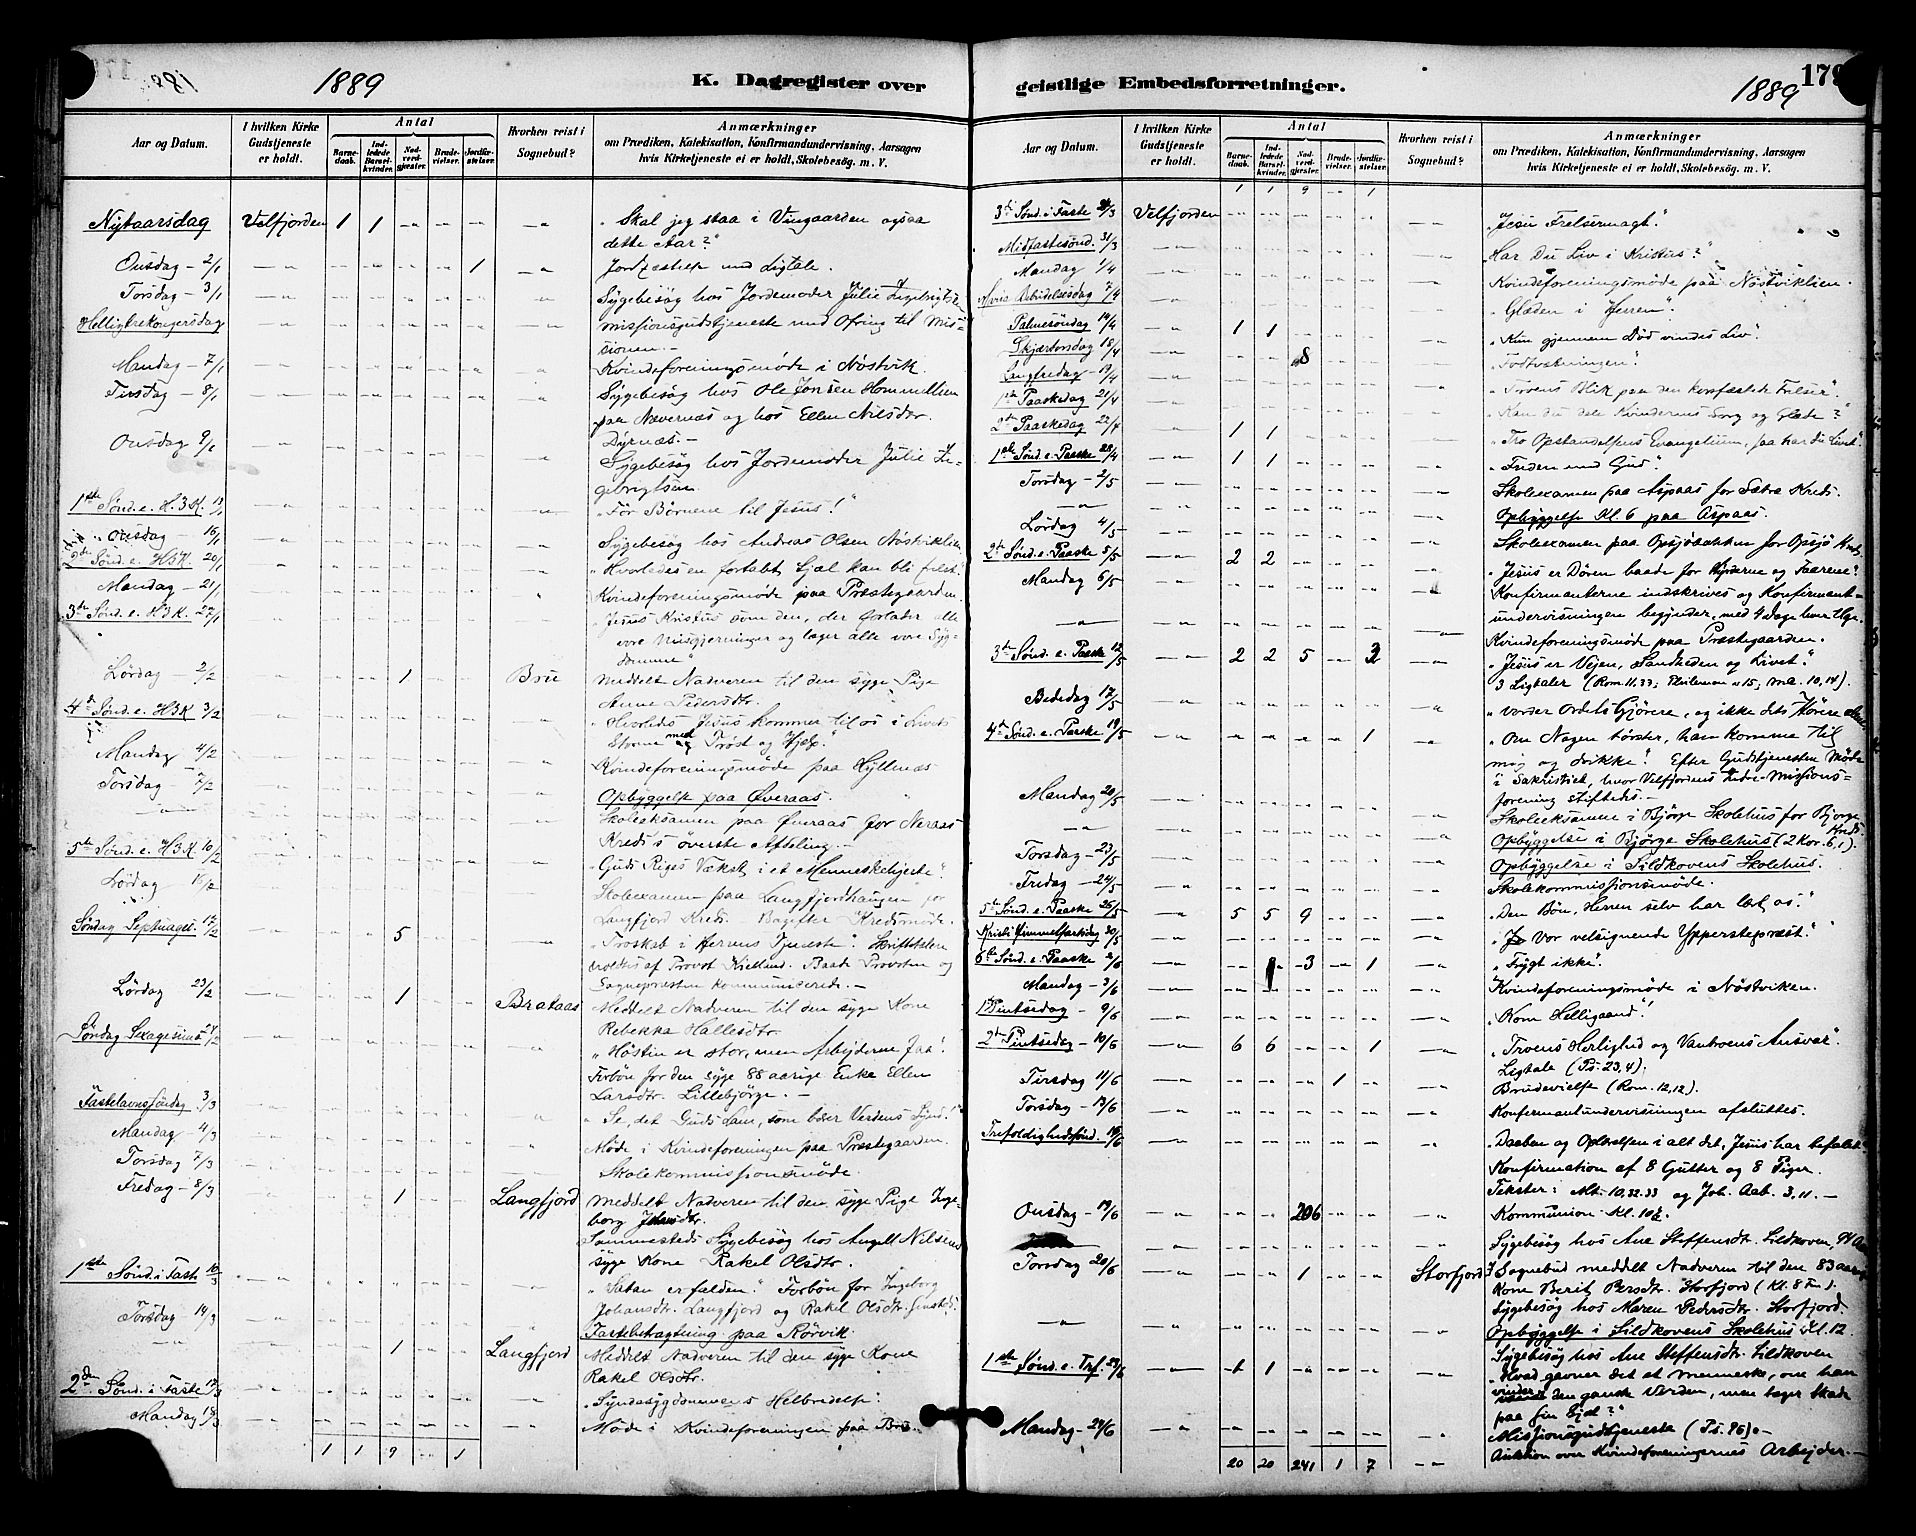 1889
K. Dagregister over
Aar og Datum.
I hvilken Kirke Gudstjeneste er holdt.
Antal
Barnedaab.
Indledede Barselkvinder.
Nadverdgjester.
Brudevielser.
Jordfæstelser.
Hvorhen reist i Sognebud?
Anmærkninger
om Prædiken, Katekisation, Konfirmandundervisning, Aarsagen
hvis Kirketjeneste ei er holdt, Skolebesøg. m. V.
Nytaarsdag Velfjorden 1 1 „Skal jeg staa i Vingaarden ogsaa
dette Aar?“
Onsdag 2/1 1 Jordfæstelse med Ligtale.
Torsdag 3/1 Sygebesøg hos Jordemoder Julie
Helligtrekongersdag Missionsgudstjeneste med Ofring til Mis-
sionen.
Mandag 7/1 Kvindeforeningsmøde i Nøstvik.
Tirsdag 8/1 Sygebesøg hos Ole Jonsen
paa Nævernæs og hos Ellen Nilsdtr.
Dyrnæs.
Onsdag 9/1 Sygebesøg hos Jordemoder Julie In-
gebrigtsen
1ste Sønd. e. H.3.K. 13/1 „Før Børnene til Jesus!“
Onsdag 16/1 Sygebesøg hos Andreas Olsen Nøstviklien
2den Sønd. e. H3K. 20/1 „Hvorledes en fortabt Sjæl kan bli frelst“.
Mandag 21/1 Kvindeforeningsmøde paa Præstegaarden.
3die Sønd. e. H3K. 27/1 „Jesus Kristus som den, der forlater alle
vore Misgjerninger og læger alle vore Syg-
domme“
Lørdag 2/2 1 Brue Meddelt Nadveren til den syge Pige
Anne Pedersdtr.
4d Sønd. e. H3K 3/2 „Hvorledes Jesus kommer til os i Livets
Storme med Trøst og Hjælp.“
Mandag 4/2 Kvindeforeningsmøde paa Hyllenæs
Torsdag 7/2 Opbyggelse paa Øveraas.
Skoleeksamen paa Øveraas for Neraas
Kreds's øverste Afdeling
5te Sønd. e. H3K. 10/2 „Guds Riges Vækst i et Menneskehjerte“.
Lørdag Skoleexamen paa Langfjordhaugen for
Langfjord Kreds. Bagefter Kredsmøde.
Søndag Septuages. 17/2 5 „Troskab i Herrens Tjeneste“. Skriftetalen
holdtes af Provst Kielland. Baade Provsten og
Sognepræsten kommunicerede.
Lørdag 23/2 1 Brataas Meddelt Nadveren til den syge Kone
Rebekka Hallesdtr.
Søndag Sexagesima 24/2 „Høsten er stor, men Arbejderne faa“.
Forbøn for den syge 88 aarige Enke Ellen
Larsdtr. Lillebjørge.
Fastelavnssøndag 3/3 „Se, det Guds Lam, som bær Verdens Synd!“
Mandag 4/3 Møde i Kvindeforeningen paa Præstegaarden
Torsdag 7/3 Skolekommissionsmøde
Fredag 8/3 1 Langfjord Meddelt Nadveren til den syge Pige Inge-
borg Johansdtr.
Sammesteds Sygebesøg hos Angell Nilsens
syge Kone Rakel Olsdtr.
1ste Sønd. i Faste 10/3 „Satan er falden.“ Forbøn for Ingeborg
Johansdtr. Langfjord og Rakel Olsdtr.
Torsdag 14/3 Fastebetragtning paa Rørvik.
1 Langfjord Meddelt Nadveren til den syge Kone
Rakel Olsdtr.
2den Sønd. i Faste 17/3 „Syndesygdommens Helbredelse“
Mandag 18/3 Møde i Kvindeforeningen paa Brue
1 1 9 1
geistlige Embedsforretninger.
1889
179
Aar og Datum.
I hvilken Kirke Gudstjeneste er holdt.
Antal
Barnedaab.
Indledede Barselkvinder.
Nadverdgjester.
Brudevielser.
Jordfæstelser.
Hvorhen reist i Sognebud?
Anmærkninger
om Prædiken, Katekisation, Konfirmandundervisning, Aarsagen
hvis Kirketjeneste ei er holdt, Skolebesøg. m. V.
1 1 9 1
3die Sønd. i Faste 24/3 Velfjorden „Jesu Frelsermagt“.
Midfastesønd. 31/3 „Har Du Liv i Kristus?“
Mandag 1/4 Kvindeforeningsmøde paa Nøstviklien.
Mariæ Bebudelsesdag 7/4 „Glæden i Herren“.
Palmesøndag 14/4 1 1 „Kun gjennem Død vindes Liv“.
Skjærtorsdag 18/4 8 „Fodtvætningen“.
Langfredag 19/4 „Troens Blik paa den korsfæstede Frelser“.
1ste Paaskedag 21/4 „Kan du dele Kvindernes Sorg og Glæde?“
2den Paaskedag 22/4 1 1 „Tro Opstandelsens Evangelium, saa har du Livet“
1ste Sønd. e. Paaske 28/4 1 1 „Freden med Gud“.
Torsdag 2/5 Skoleexamen paa Aspaas for Sætra Kreds.
Opbyggelse Kl. 6 paa Aspaas.
Lørdag 4/5 Skoleexamen paa Opsjøbakken for Opsjø Kreds.
2den Sønd. e. Paaske 5/5 2 2 „Jesus er Døren baade for Hyrderne og Faarene“.
Mandag 6/5 Konfirmanterne indskrives og Konfirmant-
undervisningen begynder, med 4 Dage hver Uge.
Kvindeforeningsmøde paa Præstegaarden.
3die Sønd. e. Paaske 12/5 2 2 5 3 „Jesus er Vejen, Sandheden og Livet“.
3 Ligtaler (Rom. 11.33; Philemon v 15; Ma. 10,14).
Bededag 17/5 „Vorder Ordets Gjørere, og ikke dets Hørere
4de Sønd. e. Paaske 19/5 1 „Om Nogen tørster, han komme til
mig og drikke“. Efter Gudstjenesten Møde
i Sakristiet, hvor Velfjordens Indre-Missions-
forening stiftedes.
Mandag 20/5 Skoleeksamen i Bjørge Skolehus for Bjørge
Kreds.
Opbyggelse i Bjørge Skolehus (2 Kor. 6,1).
Torsdag 23/5 Opbyggelse i Sildkovens Skolehus.
Fredag 24/5 Skolekommissionsmøde.
5te Sønd. e. Paaske 26/5 5 5 9 „Den Bøn, Herren selv har lært os“.
Kristi Himmelfartsdag 30/5 „Vor velsignende Ypperstepræst“.
6te Sønd. e. Paaske 2/6 3 1 „Frygt ikke“.
Mandag 3/6 Kvindeforeningsmøde i Nøstviken.
1ste Pintsedag 9/6 „Kom Helligaand“!
2den Pintsedag 10/6 6 6 1 „Troens Herlighed og Vantroens Ansvar“.
Ligtale (Ps. 23,4).
Tirsdag 11/6 1 Brudevielse (Rom. 12,12).
Torsdag 13/6 Konfirmantundervisningen afsluttes.
Trefoldighedssønd. 16/6 „Daaben og Oplærelsen i alt det, Jesus har befalet“
Konfirmation af 8 Gutter og 8 Piger.
Tekster: Mt. 10,32.33 og Joh. Aab. 3,11.
Onsdag 19/6 206 Kommunion Kl. 10½.
Sygebesøg hos Ane Steffensdtr. Sildkoven, 94 Aar
Torsdag 20/6 1 Storfjord I Sognebud meddelt Nadveren til den 83 aarige
Kone Berit Persdtr. Storfjord (Kl. 8 Fm.).
Sygebesøg hos Maren Pedersdtr. Storfjord.
Opbyggelse i Sildkovens Skolehus Kl. 12
Sygebesøg hos Ane Steffensdtr. Sildkoven
1ste Sønd. e. Tref. 23/6 1 1 „Hvad gavner det et Menneske, om han
vinder den ganske Verden, men tager Skade
paa sin Sjæl?“
Missionsgudstjeneste (Ps. 96).
Mandag 24/6 Auktion over Kvindeforeningernes Arbejder.
20 20 241 1 7